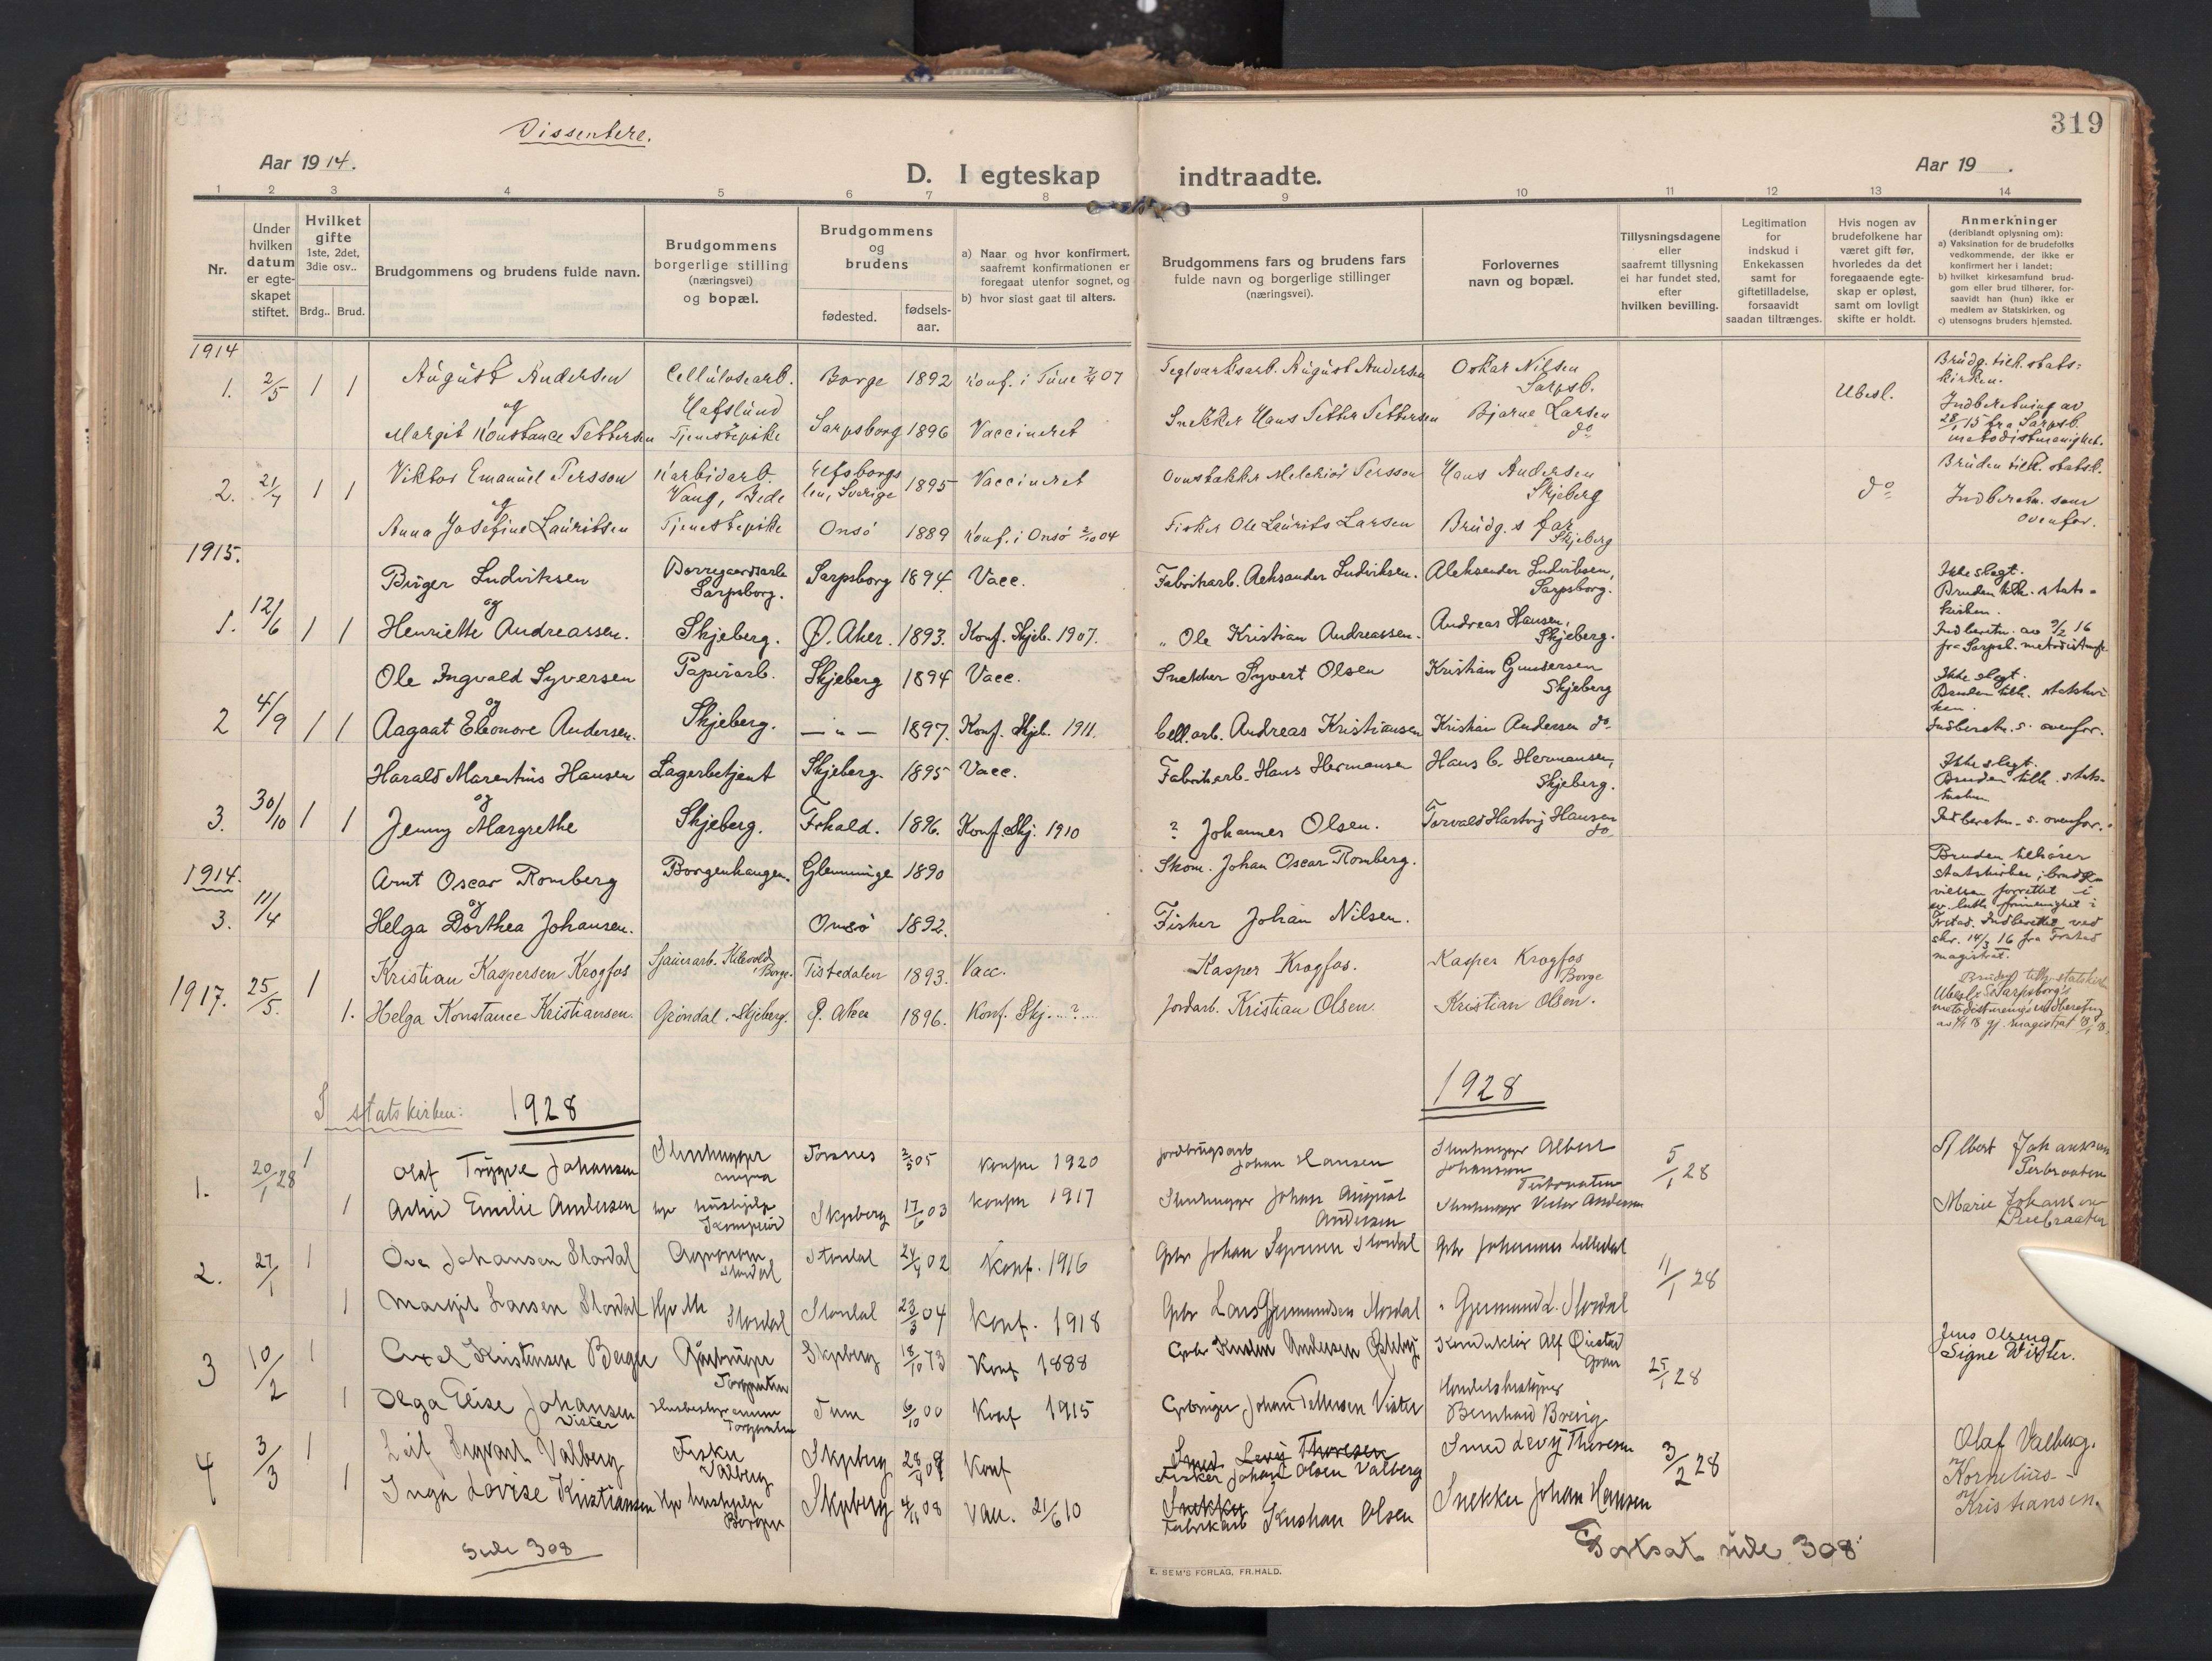 319
Dissentere.
Aar 1914.
D. I egteskap indtraadte.
Aar 19 .
1 2 3 4 5 6 7 8 9 10 11 12 13 14
Nr.
Under hvilken datum er egteskapet stiftet.
Hvilket gifte 1ste, 2det, 3die osv..
Brdg.. Brud.
Brudgommens og brudens fulde navn.
Brudgommens borgerlige stilling (næringsvei) og bopæl.
Brudgommens og brudens
fødested.
fødselsaar.
a) Naar og hvor konfirmert, saafremt konfirmationen er foregaat utenfor sognet, og
b) hvor sidst gaat til alters.
Brudgommens fars og brudens fars fulde navn og borgerlige stillinger (næringsvei).
Forlovernes navn og bopæl.
Tillysningsdagene eller saafremt tillysning ei har fundet sted, efter hvilken bevilling.
Legitimation for indskud i Enkekassen samt for giftetilladelse, forsaavidt saadan tiltrænges.
Hvis nogen av brudefolkene har været gift før, hvorledes da det foregaaende egteskap er opløst, samt om lovligt skifte er holdt.
Anmerkninger (deriblandt oplysning om):
a) Vaksination for de brudefolks vedkommende, der ikke er konfirmert her i landet;
b) hvilket kirkesamfund brudgom eller brud tilhører, forsaavidt han (hun) ikke er medlem av Statskirken, og
c) utensogns bruders hjemsted.
1914
1. 2/5 1 1 August Andersen Cellulosearb. Borge 1892 Konf. i Tune 2/4 07 Teglverksarb. August Andersen Oskar Nilsen Brudg. tilh. stats-
og Hafslund Sarpsb. Ubesl. kirken.
Margit Konstance Pettersen Tjenestepike Sarpsborg 1896 Vaccineret Snekker Hans Petter Pettersen Bjarne Larsen do Indberetning av 28/1 15 fra Sarpsb. metodistmenighet.
2. 21/7 1 1 Viktor Emanuel Persson Karbidarb. Elfsborgs 1895 Vaccineret Ovnstakker Melchior Persson Hans Andersen do Bruden tilh. statsk.
og Vang, Brede len, Sverige Skjeberg Indberetn. som
Anna Josefine Lauritsen Tjenestepike Onsö 1889 Konf. i Onsö 2/10 04 Fisker Ole Laurits Larsen Brudg.s far Skjeberg ovenfor.
1915.
1. 12/6 1 1 Birger Ludviksen Borregaardsarb Sarpsborg. Sarpsborg 1894. Vacc. Fabrikarb. Aleksander Ludviksen. Aleksander Ludviksen, Sarpsborg. Ikke slegt. Bruden tilh. stats-
og kirken.
Henriette Andreassen. Skjeberg. Ø. Aker. 1893. Konf. Skjeb. 1907. " Ole Kristian Andreassen. Andreas Hansen, Skjeberg. Indberetn. av 3/2 16 fra Sarpsb. metodistm.
2 4/9 1 1 Ole Ingvald Syversen Papirarb. Skjeberg 1894 Vacc. Snekker Syvert Olsen Kristian Gundersen Skjeberg Ikke slegt.
og Bruden tilh. statskirken.
Aagaat Eleonore Andersen. Skjeberg. — " — 1897. Konf. Skjeb. 1911. Cell.arb. Andreas Kristiansen Kristian Andersen do. Indberetn. s. ovenfor.
3. 30/10 1 1 Harald Marentius Hansen Lagerbetjent Skjeberg. 1895 Vacc. Fabrikarb. Hans Hermansen Hans C. Hermansen, Skjeberg. Ikke slegt. Bruden tilh. stats-
og kirken
Jenny Margrethe Skjeberg. Frhald. 1896. Konf. Skj. 1910 ? Johannes Olsen. Torvald Hartvig Hansen do. Indberetn. s. ovenfor.
1914.
3. 11/4 Arnt Oscar Romberg Borgenhaugen. Glemminge 1890 Skom. Johan Oscar Romberg. Bruden tilhører statskirken; brudevielsen forrettet i
og ev. luth. frimenighet i
Helga Dorthea Johansen. Onsö 1892. Fisker Johan Nilsen. Frstad. Indberettet ved skr. 14/3 16 fra Frstad magistrat.
1917. 25/5. 1 Kristian Kaspersen Krogfos Sjauerarb. Kilevold, Borge. Tistedalen 1893. Vacc. Kasper Krogfos. Kasper Krogfos Borge Bruden tilh. statskirken
1. Helga Konstance Kristiansen. Grøndal, Skjeberg. Ø. Aker 1896. Konf. Skj. ...?... Jordarb. Kristian Olsen. Kristian Olsen.
I statskirken: 1928 1928
1. 20/1 28 1 Olaf Trygve Johansen Stenhugger Torsnes 2/5 05 Konfn 1920 Jordbrugsarb Johan Hansen Stenhugger Albert Johansen 5/1 28 Albert Johansen
1 Astrid Emilie Andersen Skjeberg 17/6 03 Konfn 1917 Stenhugger Johan August Andersen Stenhugger Victor Andersen Marie Johansen
2. 27/1 1 Ove Johansen Stordal Agronom Stordal Stordal 24/4 02 Konf. 1916 Gbr Johan Syversen Stordal Gbr Johannes Lilledal 11/1 28
1 Margit Larsen Stordal Stordal Stordal 23/3 04 Konf. 1918 Gbr Lars Gjermundsen Stordal " Gjermund L. Stordal
3 10/2 1 Axel Kristensen Berger Gårbruger Skjeberg 18/10 73 Konf 1888 Konduktør Alf Øiestad 25/1 28 Jens Olseng Signe Wister.
1 Olga Elise Johansen Vister Tune 6/10 00 Konf 1915 Gbruger Johan Pettersen Vister Bernhard Brevig
4 3/3 1 Leif Sigvart Valberg Fisker Valberg Skjeberg Konf Smed Levy Thoresen Smed Levy Thoresen 3/2 28 Olaf Valberg.
Fisker Johan Olsen Valberg
1 Inga Lovise Kristiansen Hjv. hushjelp Borgen Skjeberg 4/11 08 Vacc. 21/6 10 Snekker Snekker Johan Hansen Kornelius
Fabrikarb Kristian Olsen Kristiansen.
Side 308
Fortsat side 308
E. SEM'S FORLAG, FR.HALD.